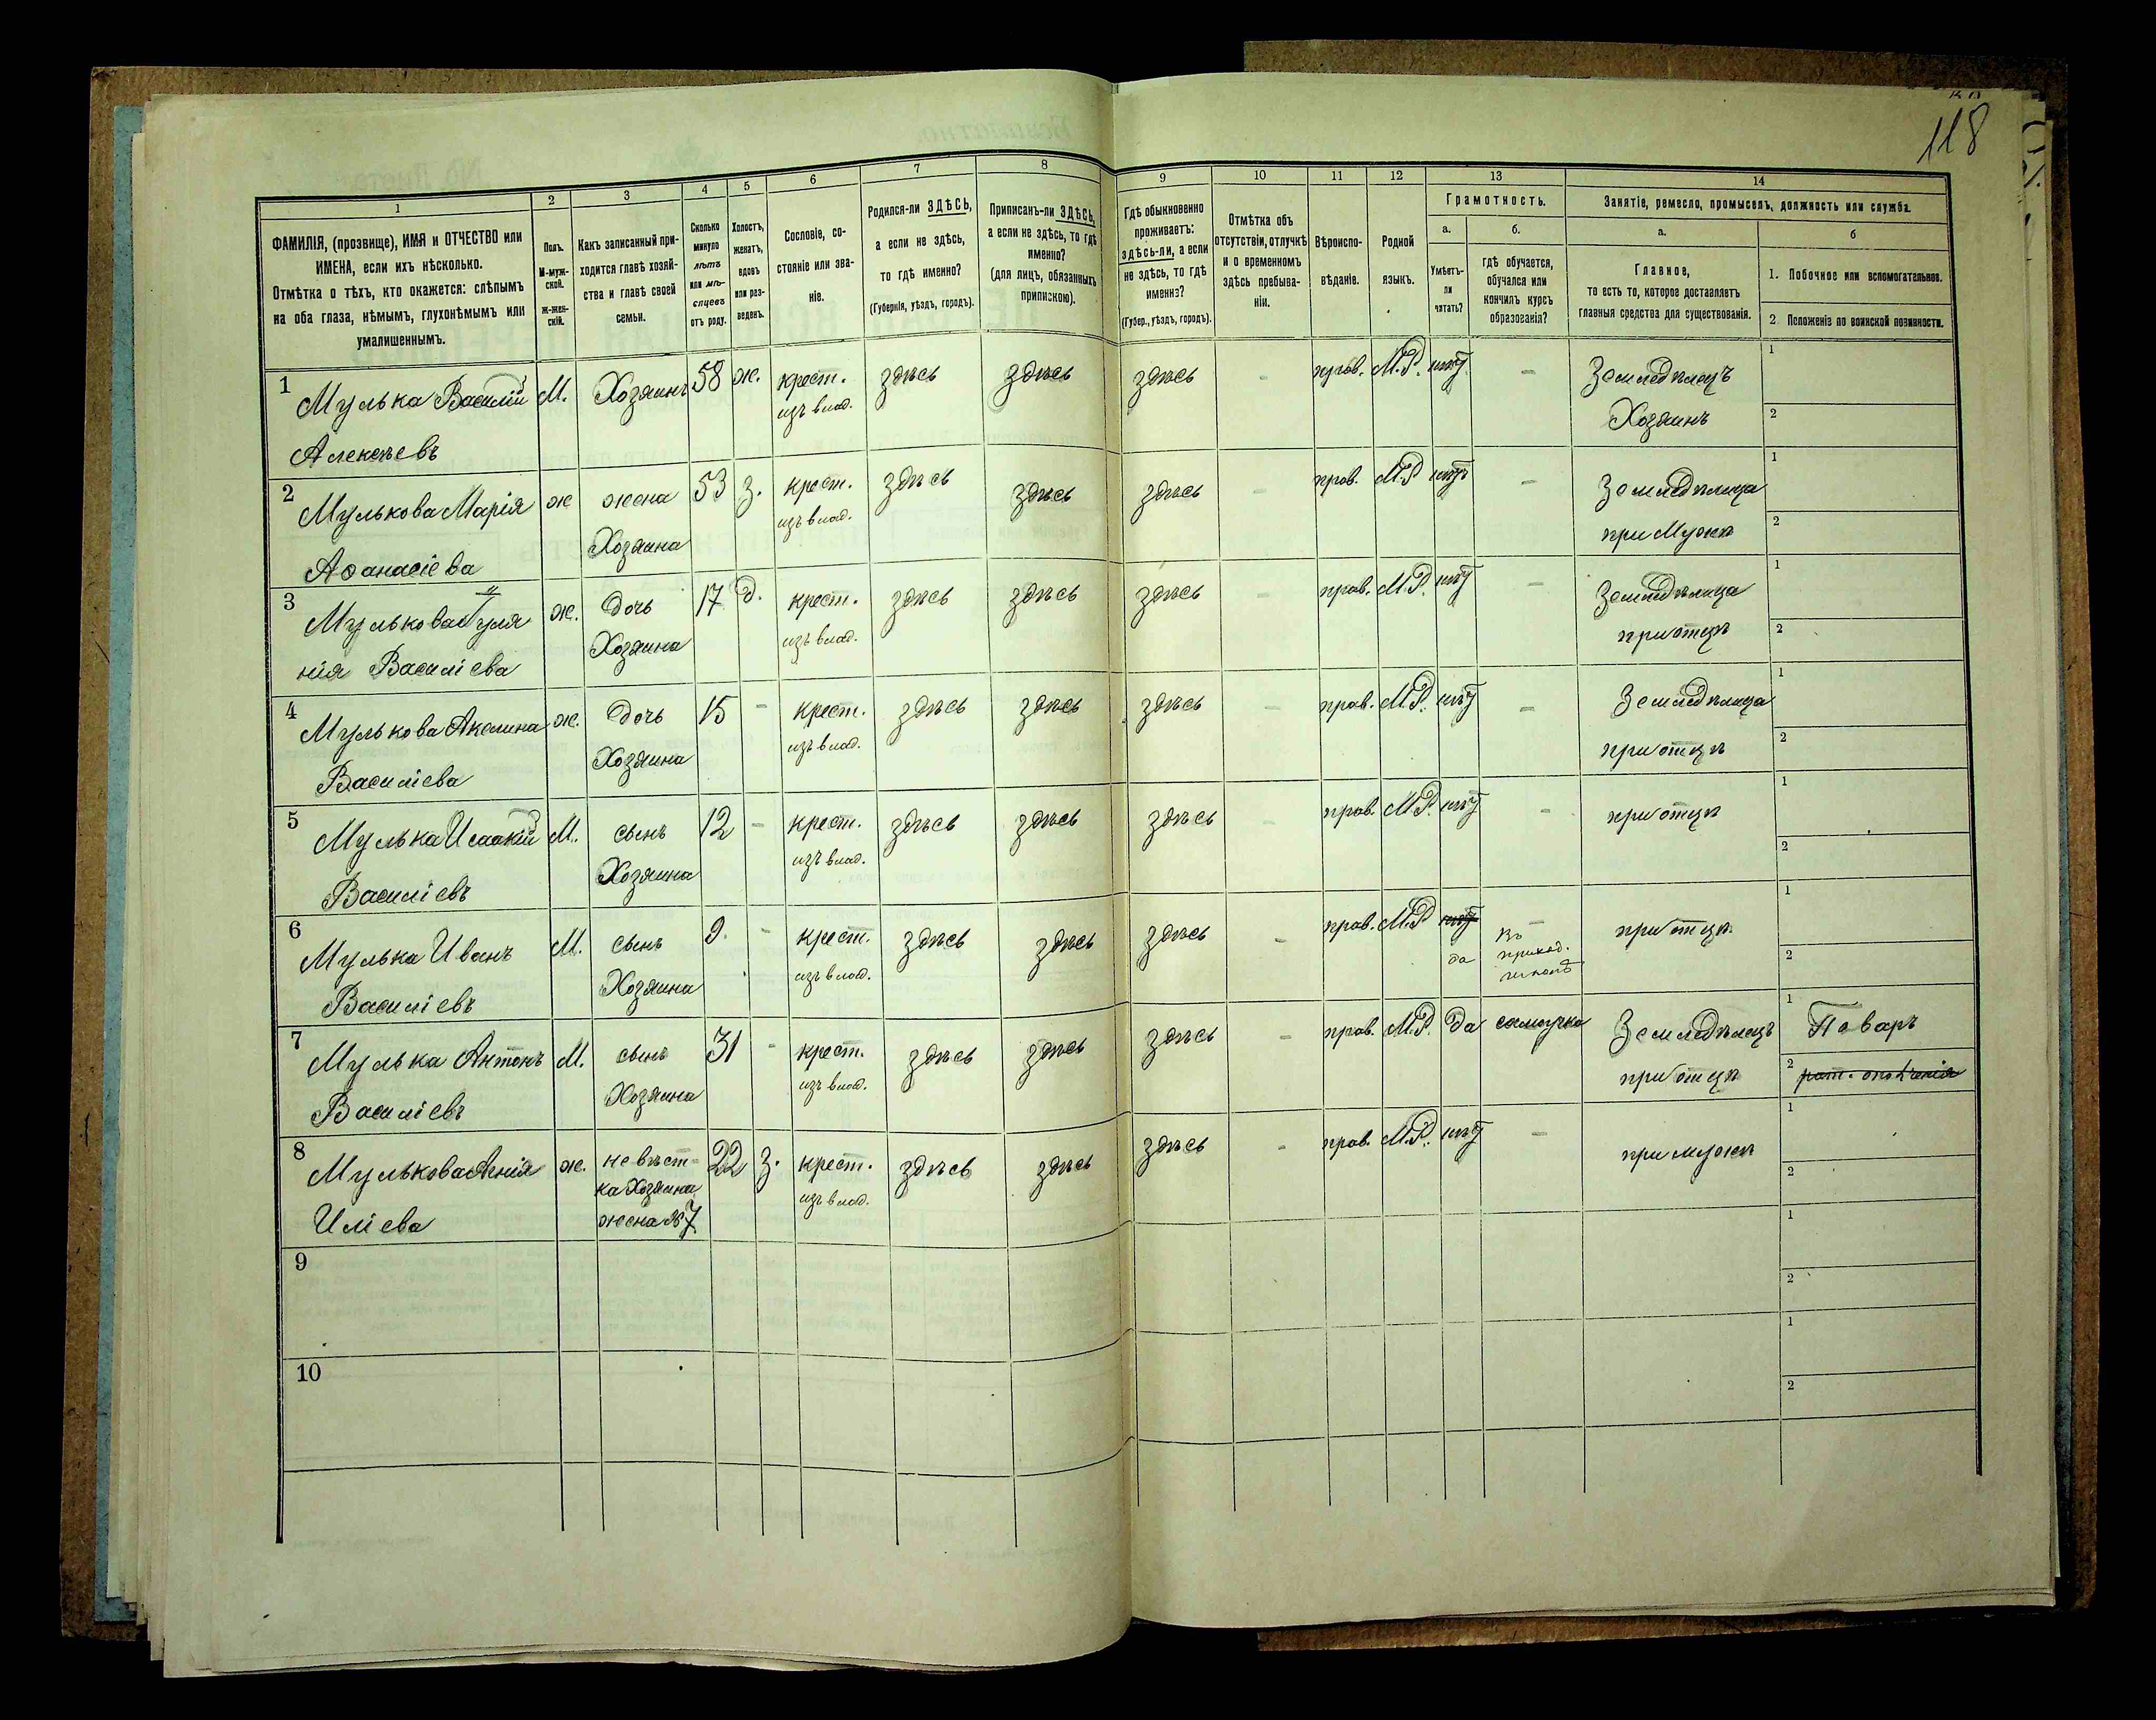 118
1 2 3 4 5 6 7 8 9 10 11 12 13 14
ФАМИЛІЯ, (прозвище), ИМЯ и ОТЧЕСТВО или
ИМЕНА, если ихъ нѣсколько.
Отмѣтка о тѣхъ, кто окажется: слѣпымъ
на оба глаза, нѣмымъ, глухонѣмымъ или
умалишеннымъ.
Полъ.
М-муж-
ской.
Ж-жен-
скій.
Какъ записанный при-
ходится главѣ хозяй-
ства и главѣ своей
семьи.
Сколько
минуло
лѣтъ
или мѣ-
сяцевъ
отъ роду.
Холостъ,
женатъ,
вдовъ
или раз-
веденъ.
Сословіе, со-
стояніе или зва-
ніе.
Родился-ли ЗДѢСЬ,
а если не здѣсь,
то гдѣ именно?
(Губернія, уѣздъ, городъ).
Приписанъ-ли ЗДѢСЬ,
а если не здѣсь, то гдѣ
именно?
(для лицъ, обязанныхъ
припискою).
Гдѣ обыкновенно
проживаетъ:
здѣсь-ли, а если
не здѣсь, то гдѣ
именно?
(Губер., уѣздъ, городъ).
Отмѣтка объ
отсутствіи, отлучкѣ
и о временномъ
здѣсь пребыва-
ніи.
Вѣроиспо-
вѣданіе.
Родной
языкъ.
Грамотность.
а.
Умѣетъ-
ли
читать?
б.
гдѣ обучается,
обучался или
кончилъ курсъ
образованія?
Занятіе, ремесло, промыселъ, должность или служба.
а.
Главное,
то есть то, которое доставляетъ
главныя средства для существованія.
б
1. Побочное или вспомогательное.
2. Положеніе по воинской повинности.
1 Мулька Василій М. Хозяинъ 58 ж. крест. здѣсь здѣсь здѣсь - прав. М.Р. нѣтъ - Земледѣлецъ 1
Алексѣевъ изъ влад. Хозяинъ 2
2 Мулькова Марія ж жена 53 з. крест. здѣсь здѣсь здѣсь - прав. М.Р. нѣтъ - Земледѣлица 1
Аѳанасіева Хозяина изъ влад. при Мужѣ 2
3 Мулькова Гуля ж. дочь 17 д. крест. здѣсь здѣсь здѣсь - прав. М.Р. нѣтъ - Земледѣлица 1
нія Василіева Хозяина изъ влад. при отцѣ 2
4 Мулькова Акелина ж. дочь 15 - крест. здѣсь здѣсь здѣсь - прав. М.Р. нѣтъ - Земледѣлица 1
Василіева Хозяина изъ влад. при отцѣ 2
5 Мулька Исаакій М. сынъ 12 - крест. здѣсь здѣсь здѣсь - прав. М.Р. нѣтъ - при отцѣ 1
Василіевъ Хозяина изъ влад. 2
6 Мулька Иванъ М. сынъ 9 - крест. здѣсь здѣсь здѣсь - прав. М.Р. нѣтъ - при отцѣ 1
Василіевъ Хозяина изъ влад. да въ приход. школѣ 2
7 Мулька Антонъ М. сынъ 31 - крест. здѣсь здѣсь здѣсь - прав. М.Р. да самоучка Земледѣлецъ 1 Поваръ
Василіевъ Хозяина изъ влад. при отцѣ 2 рат. ополченія
8 Мулькова ж. невѣст- 22 з. крест. здѣсь здѣсь здѣсь - прав. М.Р. нѣтъ - при мужѣ 1
Иліева ка Хозяина изъ влад. 2
жена №7
9 1
2
10 1
2